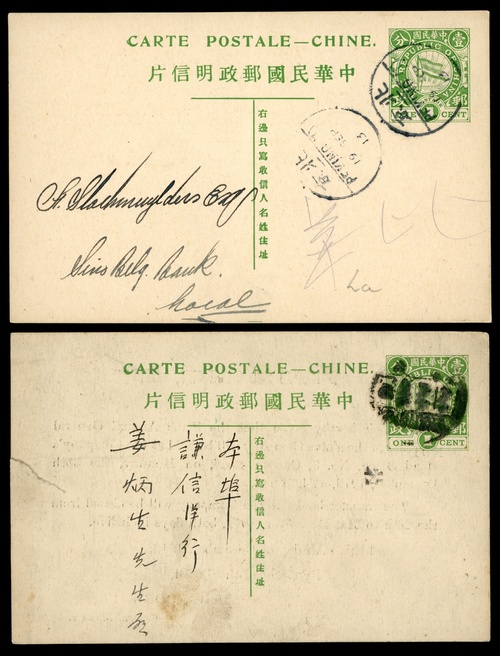 CARTE POSTALE—CHINE.
片信明政郵國民華中
分 國民華中 壹
REPUBLIC OF CHINA
郵
1 CENT
右邊只寫收信人名姓住址
北京
PEKING
19 SEP
13
北京
PEKING
Sino Belg. Bank.
Local
La
CARTE POSTALE—CHINE.
片信明政郵國民華中
國民華中 壹
ONE 1 CENT
右邊只寫收信人名姓住址
本埠
謙信洋行
姜炳生先生啟